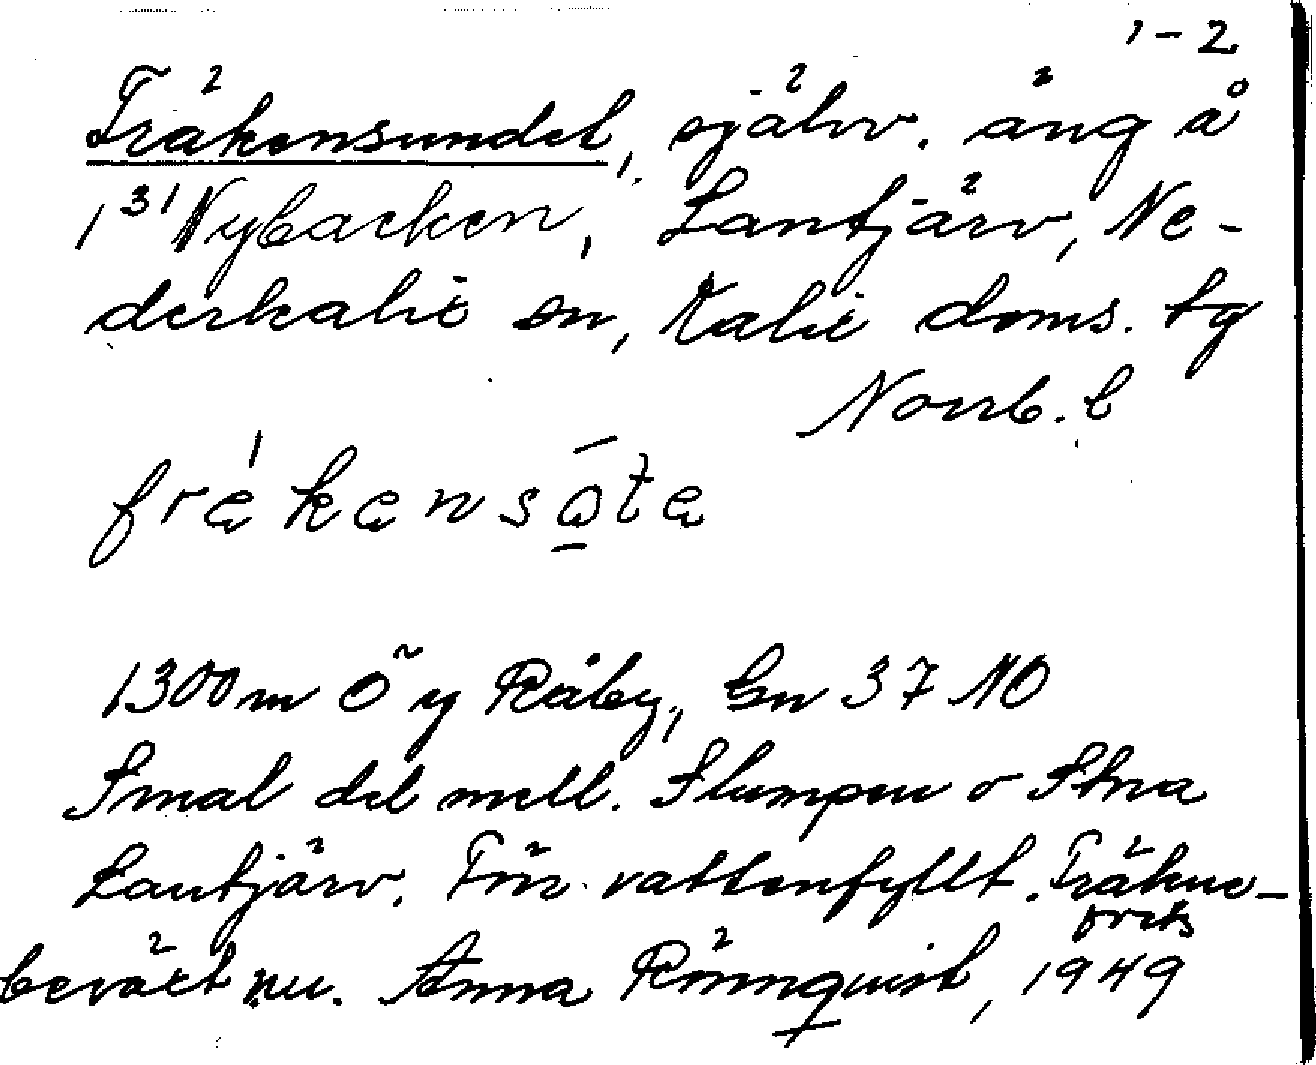 1-2
Fräkensundet, självv. äng å
1³¹ Nybacken, Lantjärv, Ne-
derkalix sn, Kalix doms. tg
Norrb. l
frękęnsǭ̱tę
1300 m Ö y Råby, Gn 37 NO
Smal del mell. Slumpen o Stora
Lantjärv. Förr vattenfyllt. Fräkne-
beväxt nu. Anna Rönnquist, 1949